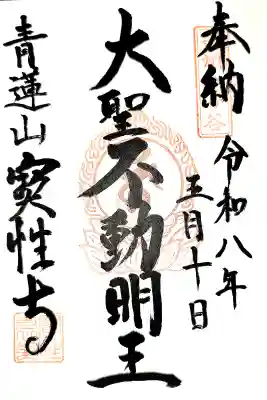 奉納
令和八年
五月十日
大聖不動明王
青蓮山
寳性寺